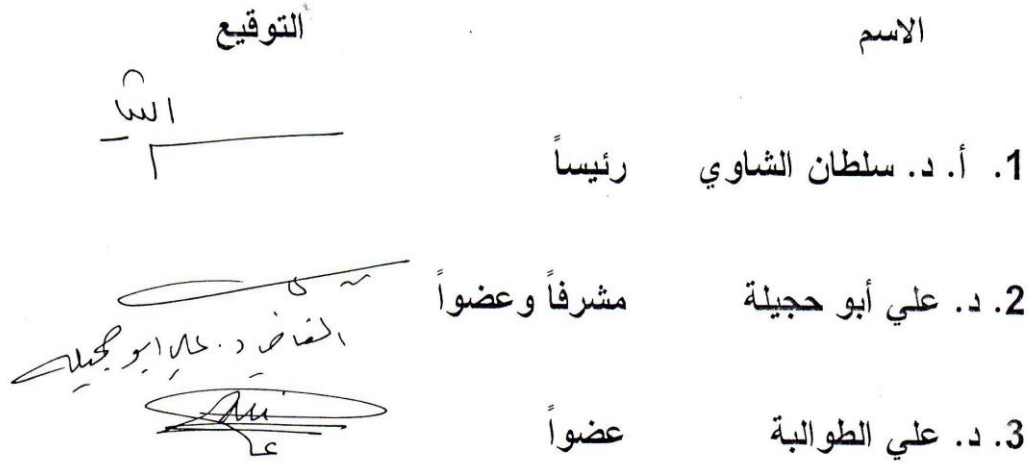 الاسم التوقيع
1. أ. د. سلطان الشاوي رئيساً
2. د. علي أبو حجيلة مشرفاً وعضواً
القاضي د. علي ابو حجيله
3. د. علي الطوالبة عضواً